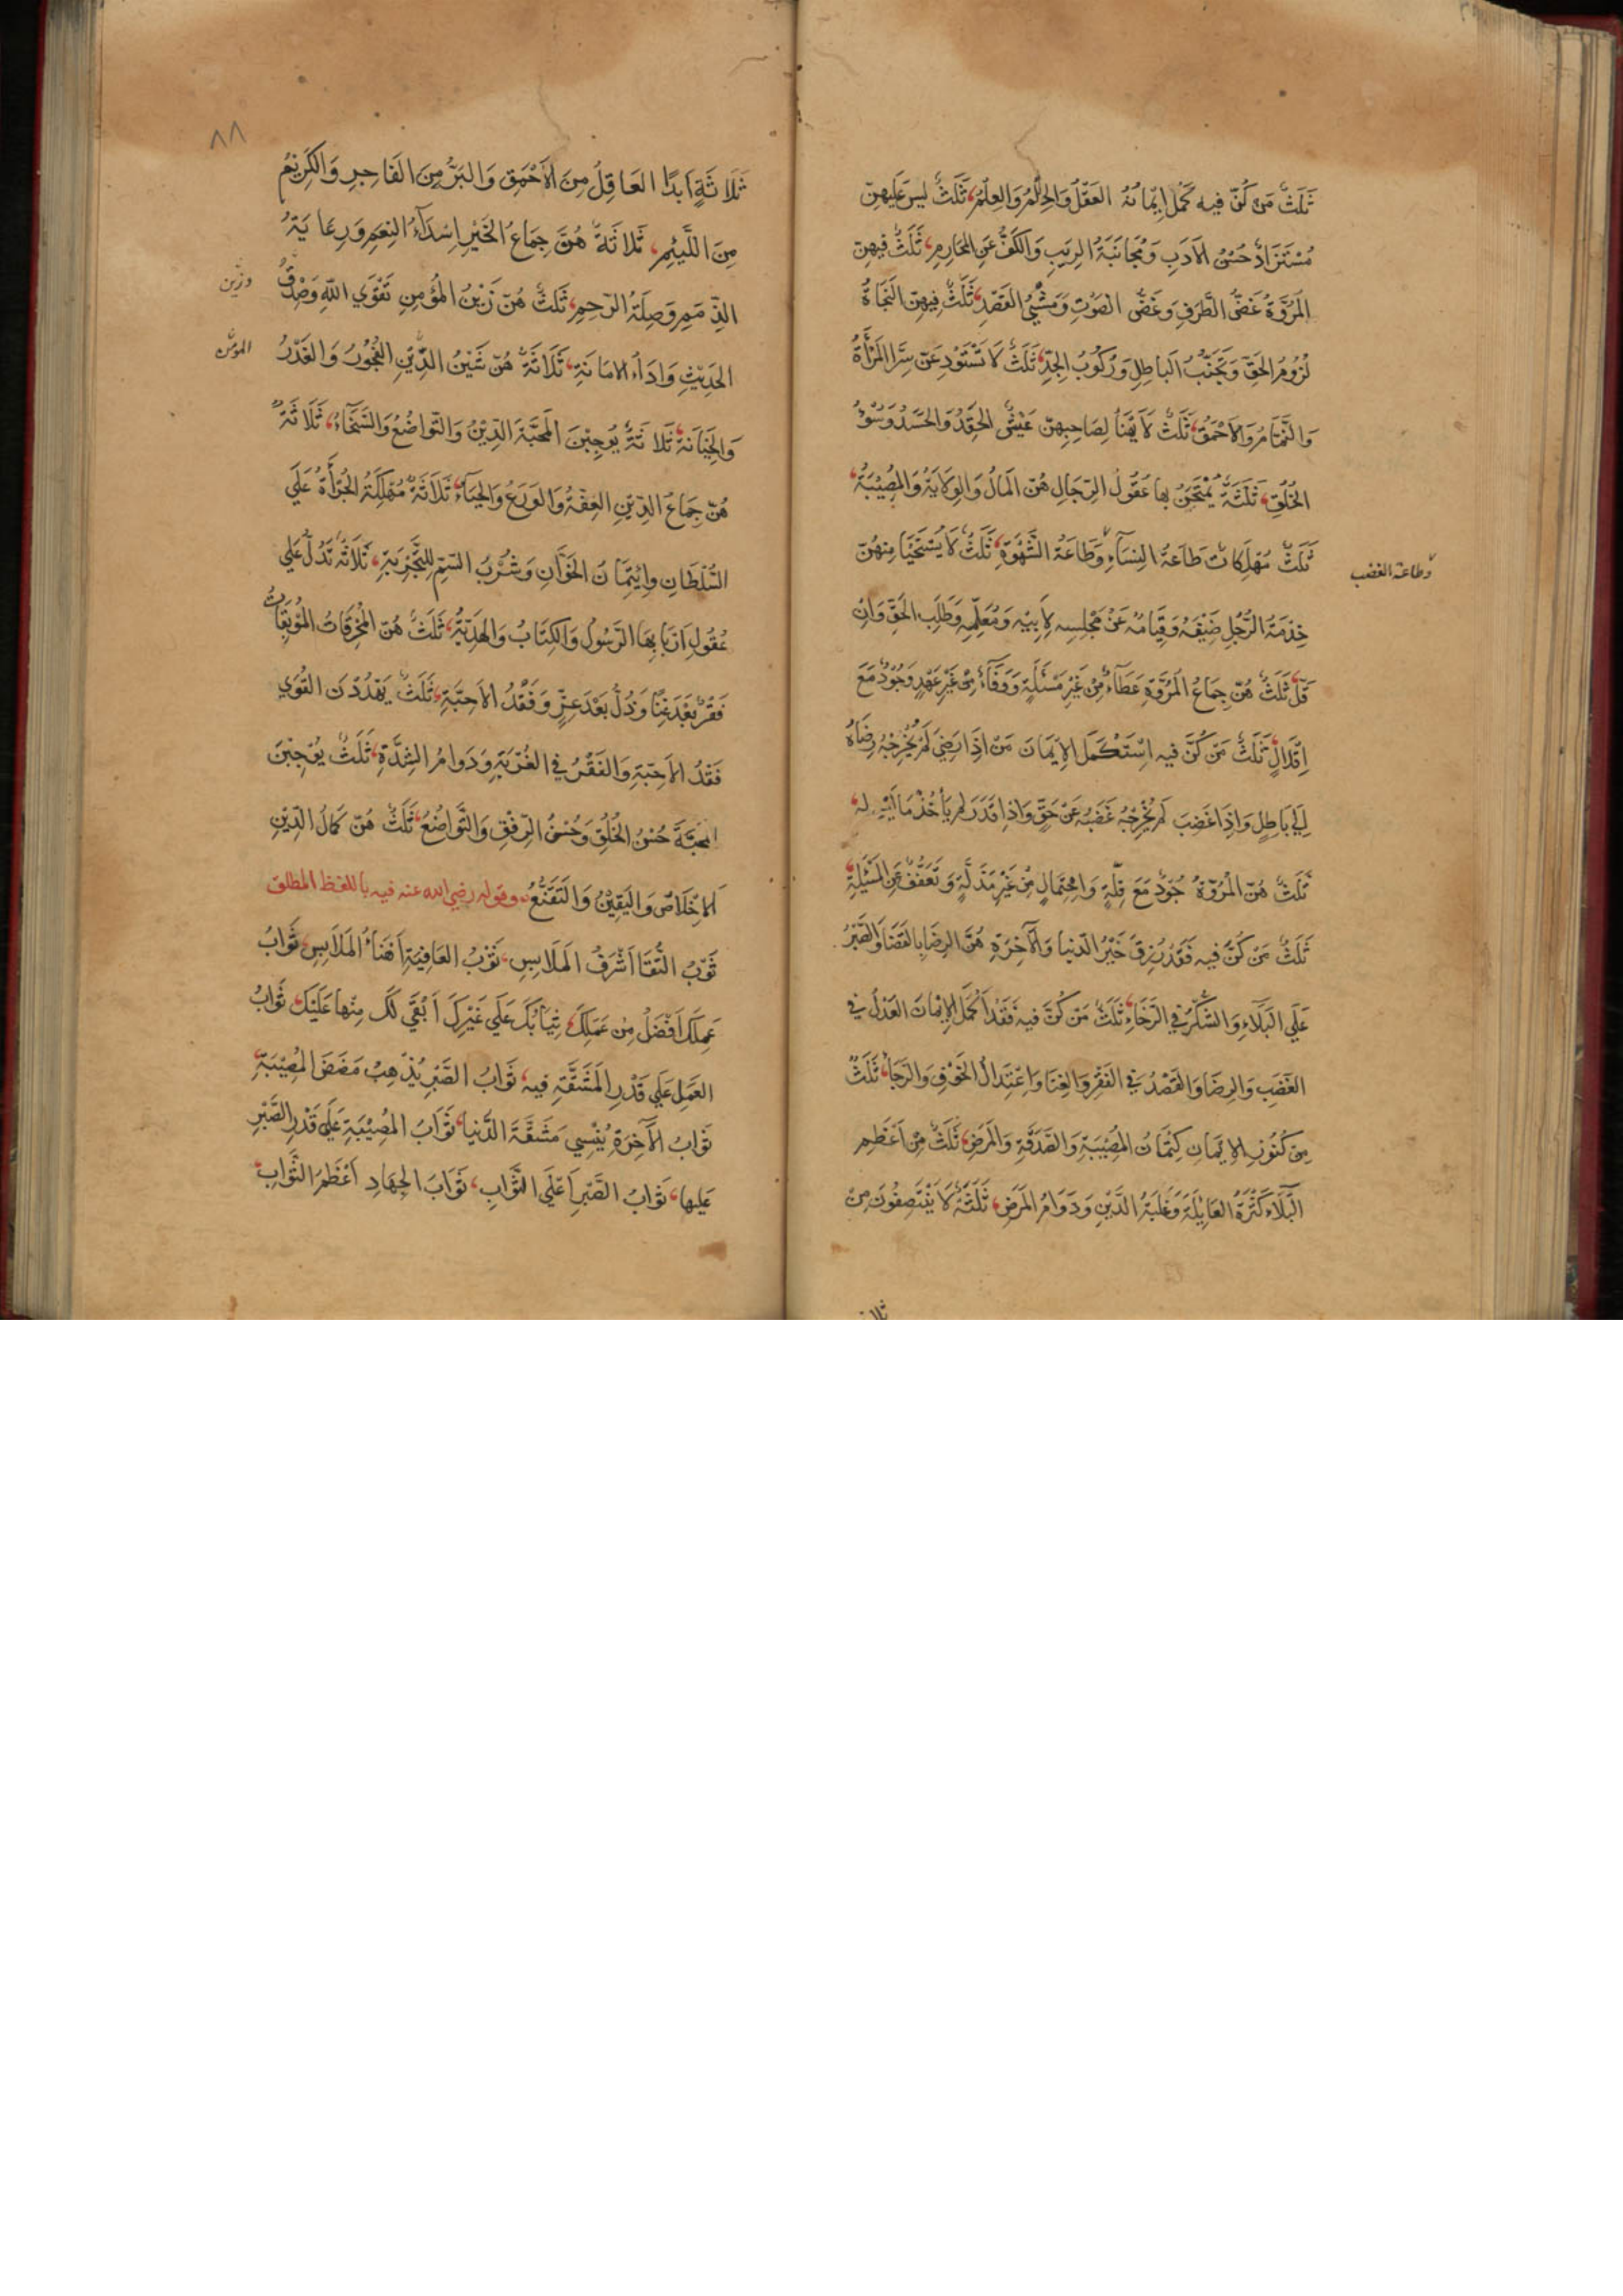 ثَلَثٌ مَن كُنَّ فيه كَمُلَ اِيمَانُهُ العَقْلُ وَالحِلْمُ وَالعِلْمُ، ثَلَثٌ ليسَ عَلَيهِنّ
مُسْتَزَادٌ حُسْنُ الاَدَبِ وَمُجَانَبَةُ الرِيَبِ وَالكَفُّ عَنِ المَحَارِمِ، ثَلَثٌ فيهِنّ
المُرُوَّةُ غَضُّ الطَّرَفِ وَغَضُّ الصَوْتِ وَمَشْيُ القَصْدِ، ثَلَثٌ فِيهِنّ النَجَاةُ
لُزُومُ الحَقّ وَتَجَنُّبُ البَاطِلِ وَرُكُوبُ الجِدِّ، ثَلَثٌ لَا تَسْتَوْدِعَنّ سِرًّا المَرْأَةُ
وَالنَّمَّامُ وَالاَحْمَقُ، ثَلَثٌ لَا يَهْنَأُ لِصَاحِبِهِنّ عَيْشٌ الحِقْدُ وَالحَسَدُ وَسُوْءُ
الخُلُقِ، ثَلَثَةٌ يُمْتَحَنُ بها عُقُولُ الرِّجَالِ هُنّ المَالُ وَالوِلَايَةُ وَالمُصِيْبَةُ،
ثَلَثٌ مُهْلِكَاتٌ طَاعَةُ النِسَآءِ وَطَاعَةُ الشَّهْوَةِ، ثَلَثٌ لَا يُسْتَحْيَا مِنهُنّ
وطاعة الغضب
خِدْمَةُ الرَّجُلِ ضَيْفَهُ وَقِيَامُهُ عَنْ مَجْلِسِه لِاَبِيْهِ وَمُعَلِّمِهِ وَطَلَبِ الحَقّ وَاِنْ
قَلَّ، ثَلَثٌ هُنّ جِمَاعُ المُرُوَّةِ عَطَآءٌ مِنْ غَيْرِ مَسْئَلَةٍ وَوَفَآءٌ مِنْ غَيْرِ عَهْدٍ وَجُوْدٌ مَعَ
اِقْلَالٍ، ثَلَثٌ مَن كُنَّ فيه اِسْتَكْمَلَ الاِيمَانَ مَنْ اِذَا رَضِيَ لَمْ يُخْرِجْهُ رِضَاهُ
اِلَي بَاطِلٍ وَاِذَا غَضِبَ لَم يُخْرِجْهُ غَضَبُه عَنْ حَقٍّ وَاِذا قَدَرَ لم يَأْخُذْ مَا لَيْسَ له،
ثَلَثٌ هُنّ المُرُوَّةُ جُوْدٌ مَعَ قِلّةٍ وَاحْتِمَالٌ مِنْ غَيْرِ مَذَلَّةٍ وَتَعَفُّفٌ عَنِ المَسْئَلَةِ،
ثَلَثٌ مَنْ كُنَّ فيه فَقَدْ رُزِقَ خَيْرُ الدّنيا وَالآخِرَةِ هُنَّ الرِضَا بِالقَضَا وَالصَّبْرُ
عَلَي البَلَآءِ وَالشُكْرُ في الرَخَاءِ، ثَلَثٌ مَن كُنّ فيه فَقَدْ اَكْمَلَ الاِيمَانَ العَدْلُ في
الغَضَبِ وَالرِضَا وَالقَصْدُ في الفَقْرِ وَالغِنَا وَاعْتِدَالُ الخَوْفِ وَالرَجَا، ثَلَثٌ
مِنْ كُنُوزِ الاِيمَانِ كِتْمَانُ المُصِيْبَةِ وَالصَّدَقَةِ وَالمَرَضِ، ثَلَثٌ مِنْ اَعْظَمِ
البَلَآءِ كَثْرَةُ العَايِلَةِ وَغَلَبَةُ الدَّيْنِ وَدَوَامُ المَرَضِ، ثَلَثَةٌ لَا يَنْتَصِفُونَ مِنْ
٨٨
ثَلَاثَةٍ اَبَدًا العَاقِلُ مِنَ الاَحْمَقِ وَالبَرُّ مِنَ الفَاجِرِ وَالكَرِيْمُ
مِنَ اللَّئِيْمِ، ثَلاثَةٌ هُنَّ جِمَاعُ الخَيْرِ اِسْدَآءُ النِعَمِ وَرِعَايَةُ
الذِّمَمِ وَصِلَةُ الرّحِمِ، ثَلَثٌ هُنّ زَيْنُ المُؤمِنِ تَقْوَي اللّهِ وَصِدْقُ
الحَدِيْثِ وَاَدَآءُ الاَمَانَةِ، ثَلَاثَةٌ هُنّ شَيْنُ الدِّيْنِ الفُجُوْرُ وَالغَدْرُ
المؤمن
وَالخِيَانَةُ، ثَلَاثَةٌ يُوجِبْنَ المَحَبَّةَ الدِيْنُ وَالتَوَاضُعُ وَالسَّخَآءُ، ثَلَاثَةٌ
هُنّ جِمَاعُ الدِيْنِ العِفَّةُ وَالوَرَعُ وَالحَيَآءُ، ثَلَاثَةٌ مُهْلِكَةٌ الجُرْأَةُ عَلَي
السُلْطَانِ وَايْتِمَانُ الخَوَّانِ وَشُرْبُ السّمِ لِلتَّجْرِبَةِ، ثَلَاثَةٌ تَدُلُّ عَلي
عُقُولِ اَرْبَابِهَا الرَّسُولُ وَالكِتَابُ وَالهَدِيَّةُ، ثَلَثٌ هُنّ المُحْرِقَاتُ المُوْبِقَاتُ
فَقْرٌ بَعْدَ غِنًا وَذُلٌّ بَعْدَ عِزٍّ وَفَقْدُ الاَحِبَّةِ، ثَلَثٌ يَهْدُدْنَ القُوَي
فَقْدُ الاَحِبّةِ وَالفَقْرُ في الغُرْبَةِ وَدَوَامُ الشِدَّةِ، ثَلَثٌ يُوْجِبْنَ
المَحَبَّةَ حُسْنُ الخُلُقِ وَحُسْنُ الرِّفْقِ وَالتَّوَاضُعُ، ثَلَثٌ هُنّ كَمَالُ الدِّيْنِ
اَلاِخْلَاصُ وَاليَقِيْنُ وَالتَقَنُّعُ، وقوله رضي الله عنه فيه باللفظ المطلق
ثَوْبُ التُّقَا اَشْرَفُ المَلَابِسِ، ثَوْبُ العَافِيَةِ اَهْنَأُ المَلَابِسِ، ثَوَابُ
عَمَلِكَ اَفْضَلُ مِن عَمَلِكَ، ثِيَابُكَ عَلَي غَيْرِكَ اَبْقَي لَكَ مِنْهَا عَلَيْكَ، ثَوَابُ
العَمَلِ عَلَي قَدْرِ المَشَقَّةِ فيه، ثَوَابُ الصَّبْرِ يُذْهِبُ مَضَضَ المُصِيْبَةِ،
ثَوَابُ الآخِرَةِ يُنْسِي مَشَقَّةَ الدُّنيا، ثَوَابُ المُصِيْبَةِ عَلَي قَدْرِ الصَّبْرِ
عَلَيها، ثَوَابُ الصَّبْرِ اَعْلَي الثَّوَابِ، ثَوَابُ الجِهَادِ اَعْظَمُ الثَّوَابِ،